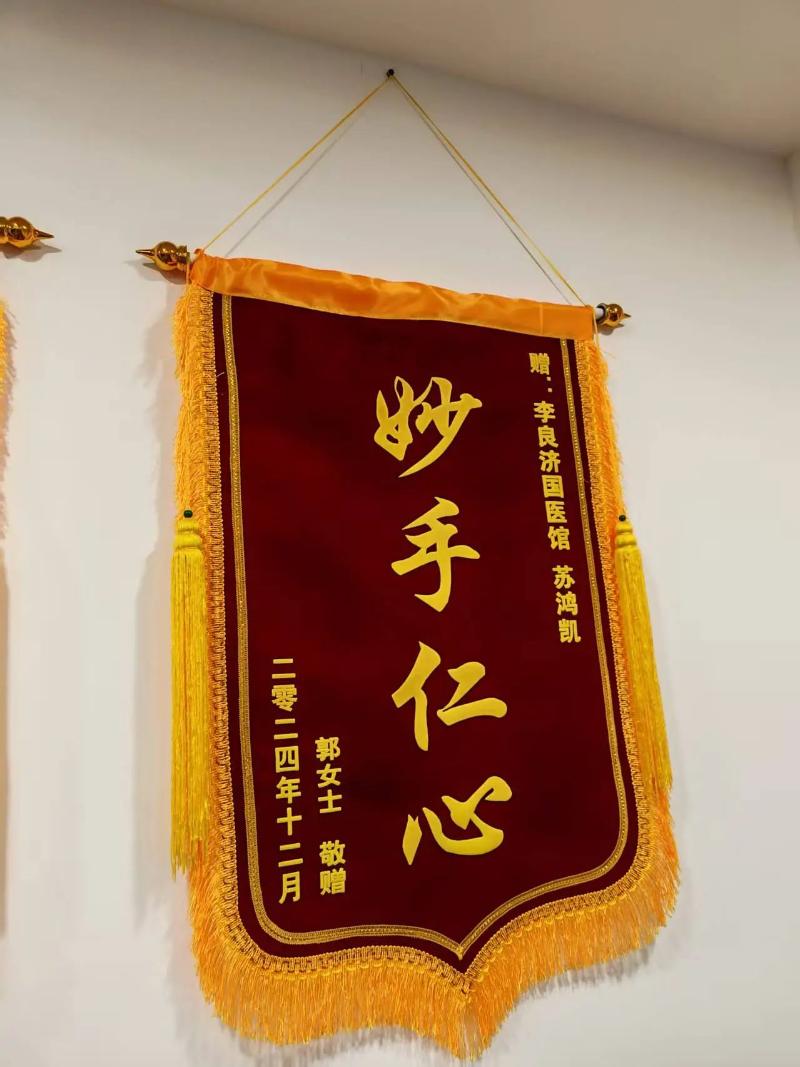 赠：李良济国医馆 苏鸿凯
妙手仁心
郭女士 敬赠
二零二四年十二月